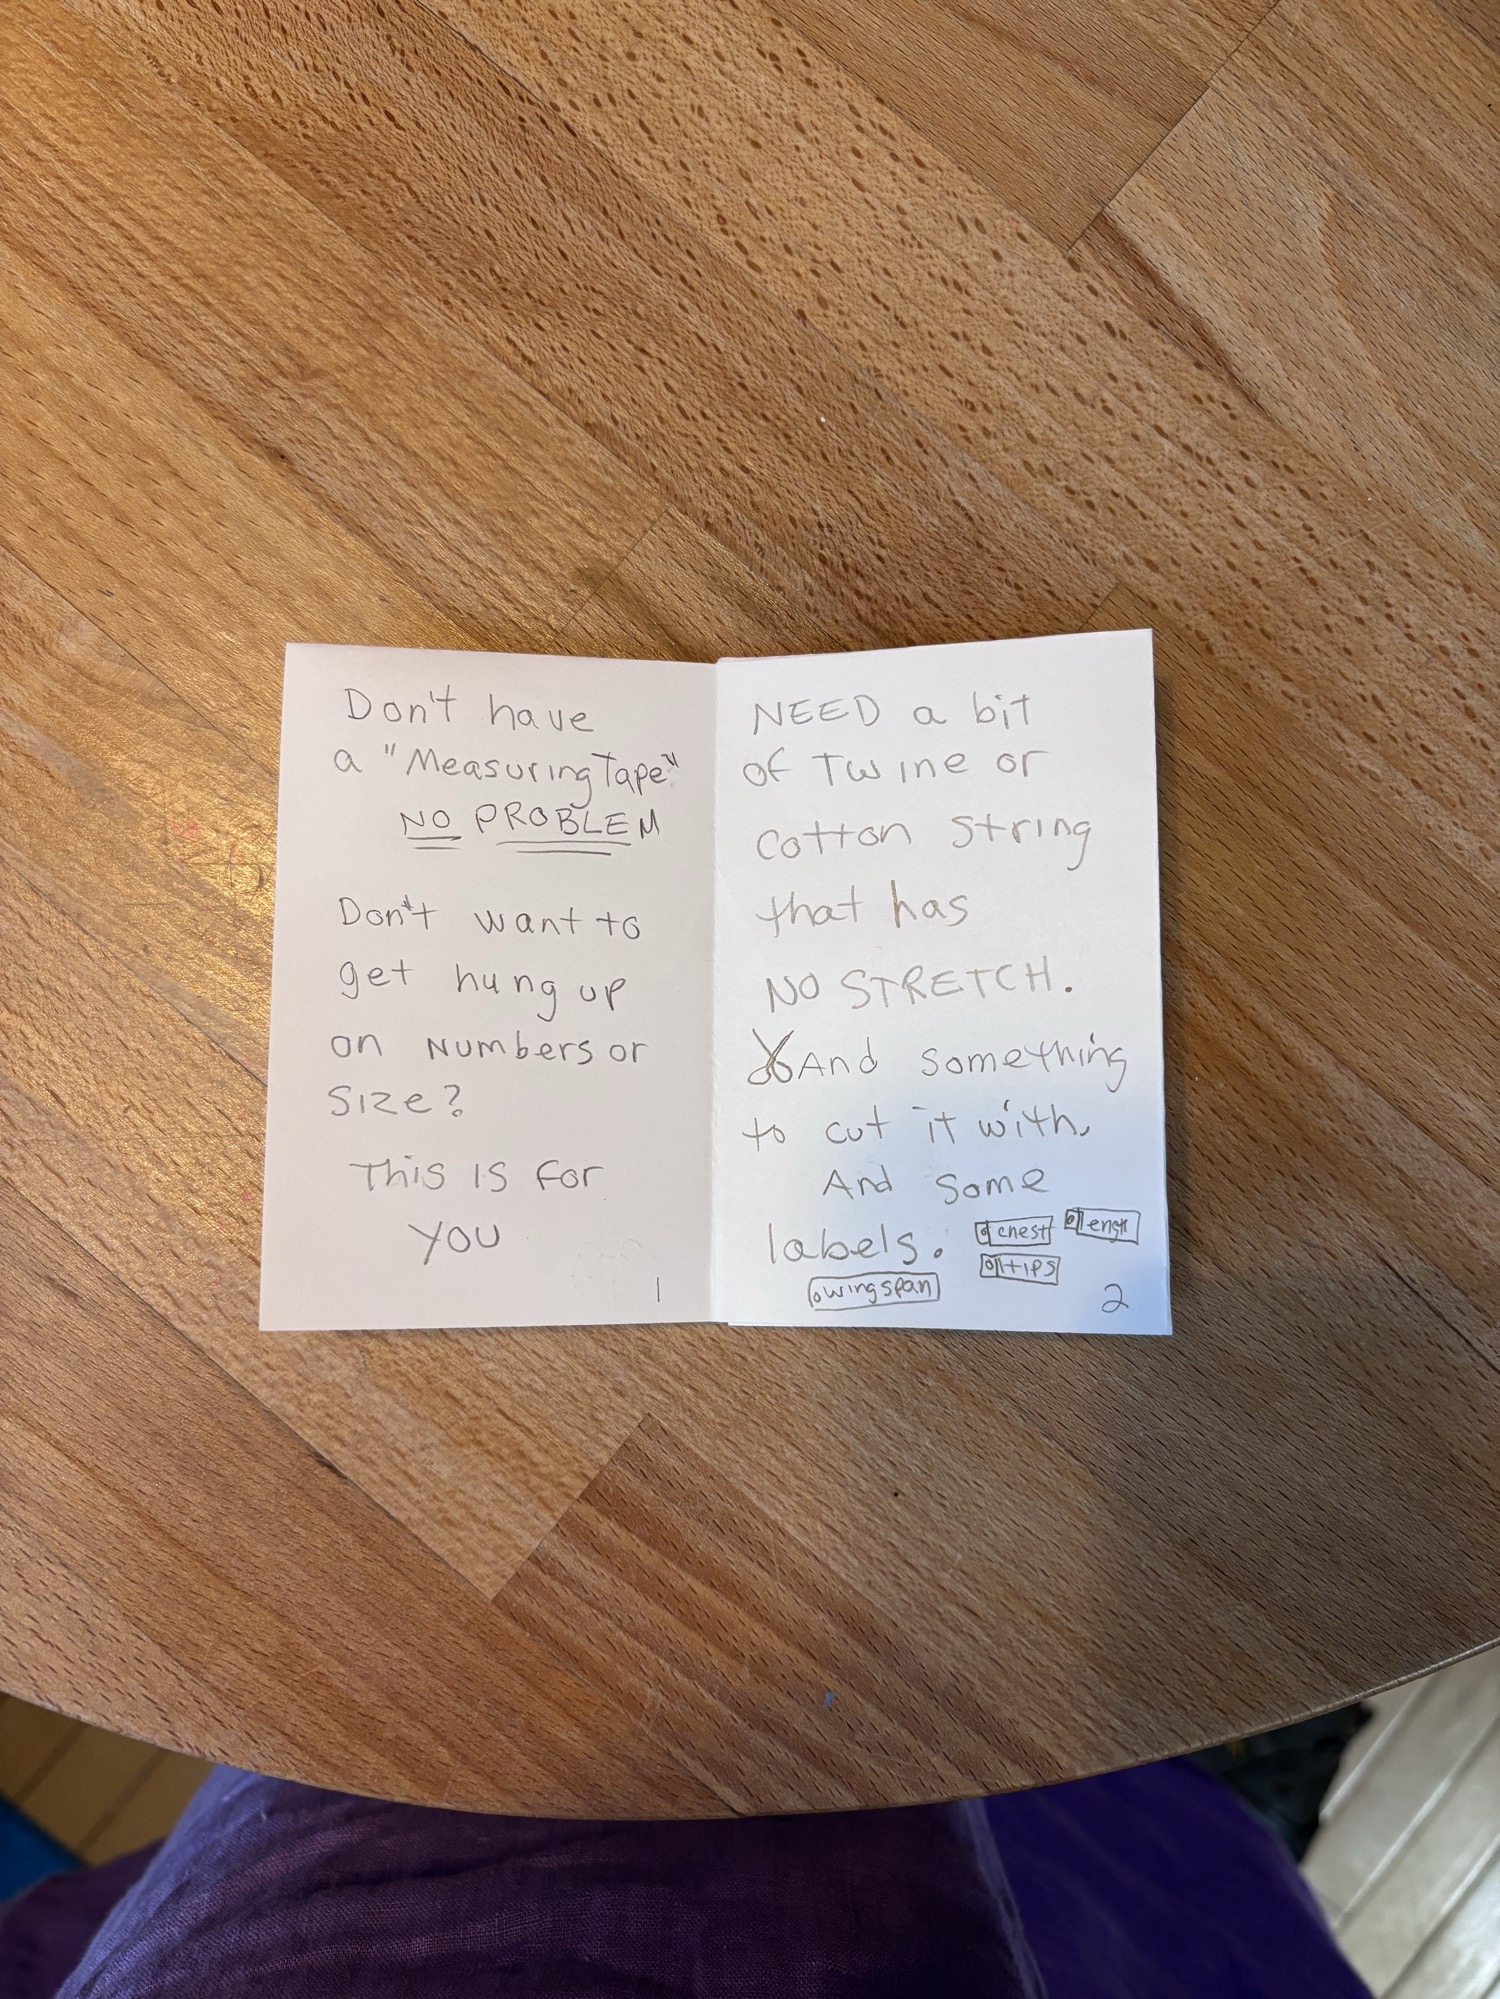 Don't have
a "Measuring Tape"
NO PROBLEM
Don't want to
get hung up
on Numbers or
Size?
This is for
YOU
1
NEED a bit
of Twine or
Cotton String
that has
NO STRETCH.
And something
to cut it with,
And some
labels.
chest
lengt
wingspan
2